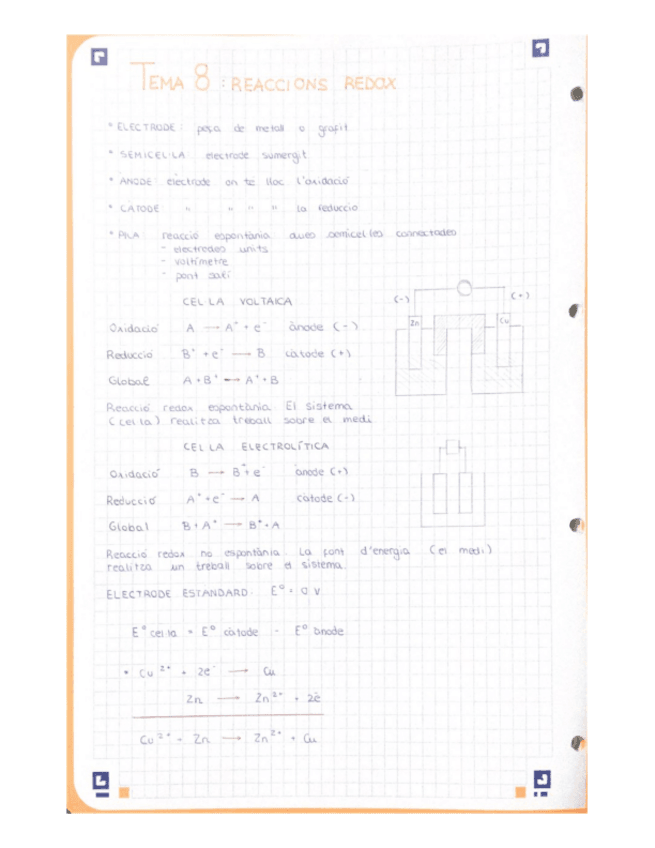 TEMA 8 : REACCIONS REDOX
* ELECTRODE : peça de metall o grafit
* SEMICEL·LA electrode sumergit
* ÀNODE : electrode on té lloc l'oxidació
* CÀTODE " " " " la reducció
* PILA reacció espontània dues semicel·les connectades
- electrodes units
- voltímetre
- pont salí
CEL·LA VOLTAICA
(-) (+)
Zn Cu
Oxidació A → A⁺ + e⁻ ànode (-)
Reducció B⁺ + e⁻ → B càtode (+)
Global A + B⁺ → A⁺ + B
Reacció redox espontània El sistema
(cel·la) realitza treball sobre el medi
CEL·LA ELECTROLÍTICA
Oxidació B → B⁺ + e⁻ ànode (+)
Reducció A⁺ + e⁻ → A càtode (-)
Global B + A⁺ → B⁺ + A
Reacció redox no espontània La font d'energia (el medi)
realitza un treball sobre el sistema.
ELECTRODE ESTANDARD: E° = 0 V
E° cel·la = E° càtode - E° ànode
* Cu²⁺ + 2e⁻ → Cu
Zn → Zn²⁺ + 2e⁻
Cu²⁺ - Zn → Zn²⁺ + Cu